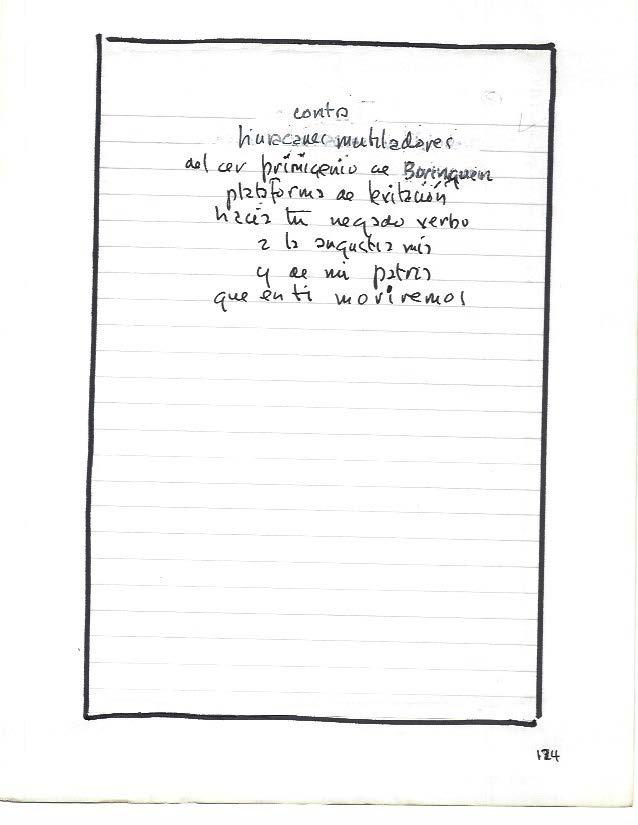 contra
huracanes mutiladores
del ser primigenio de Borinquen
plataforma de levitación
hacia tu negado verbo
a la angustia mía
y de mi patria
que en ti moriremos
124